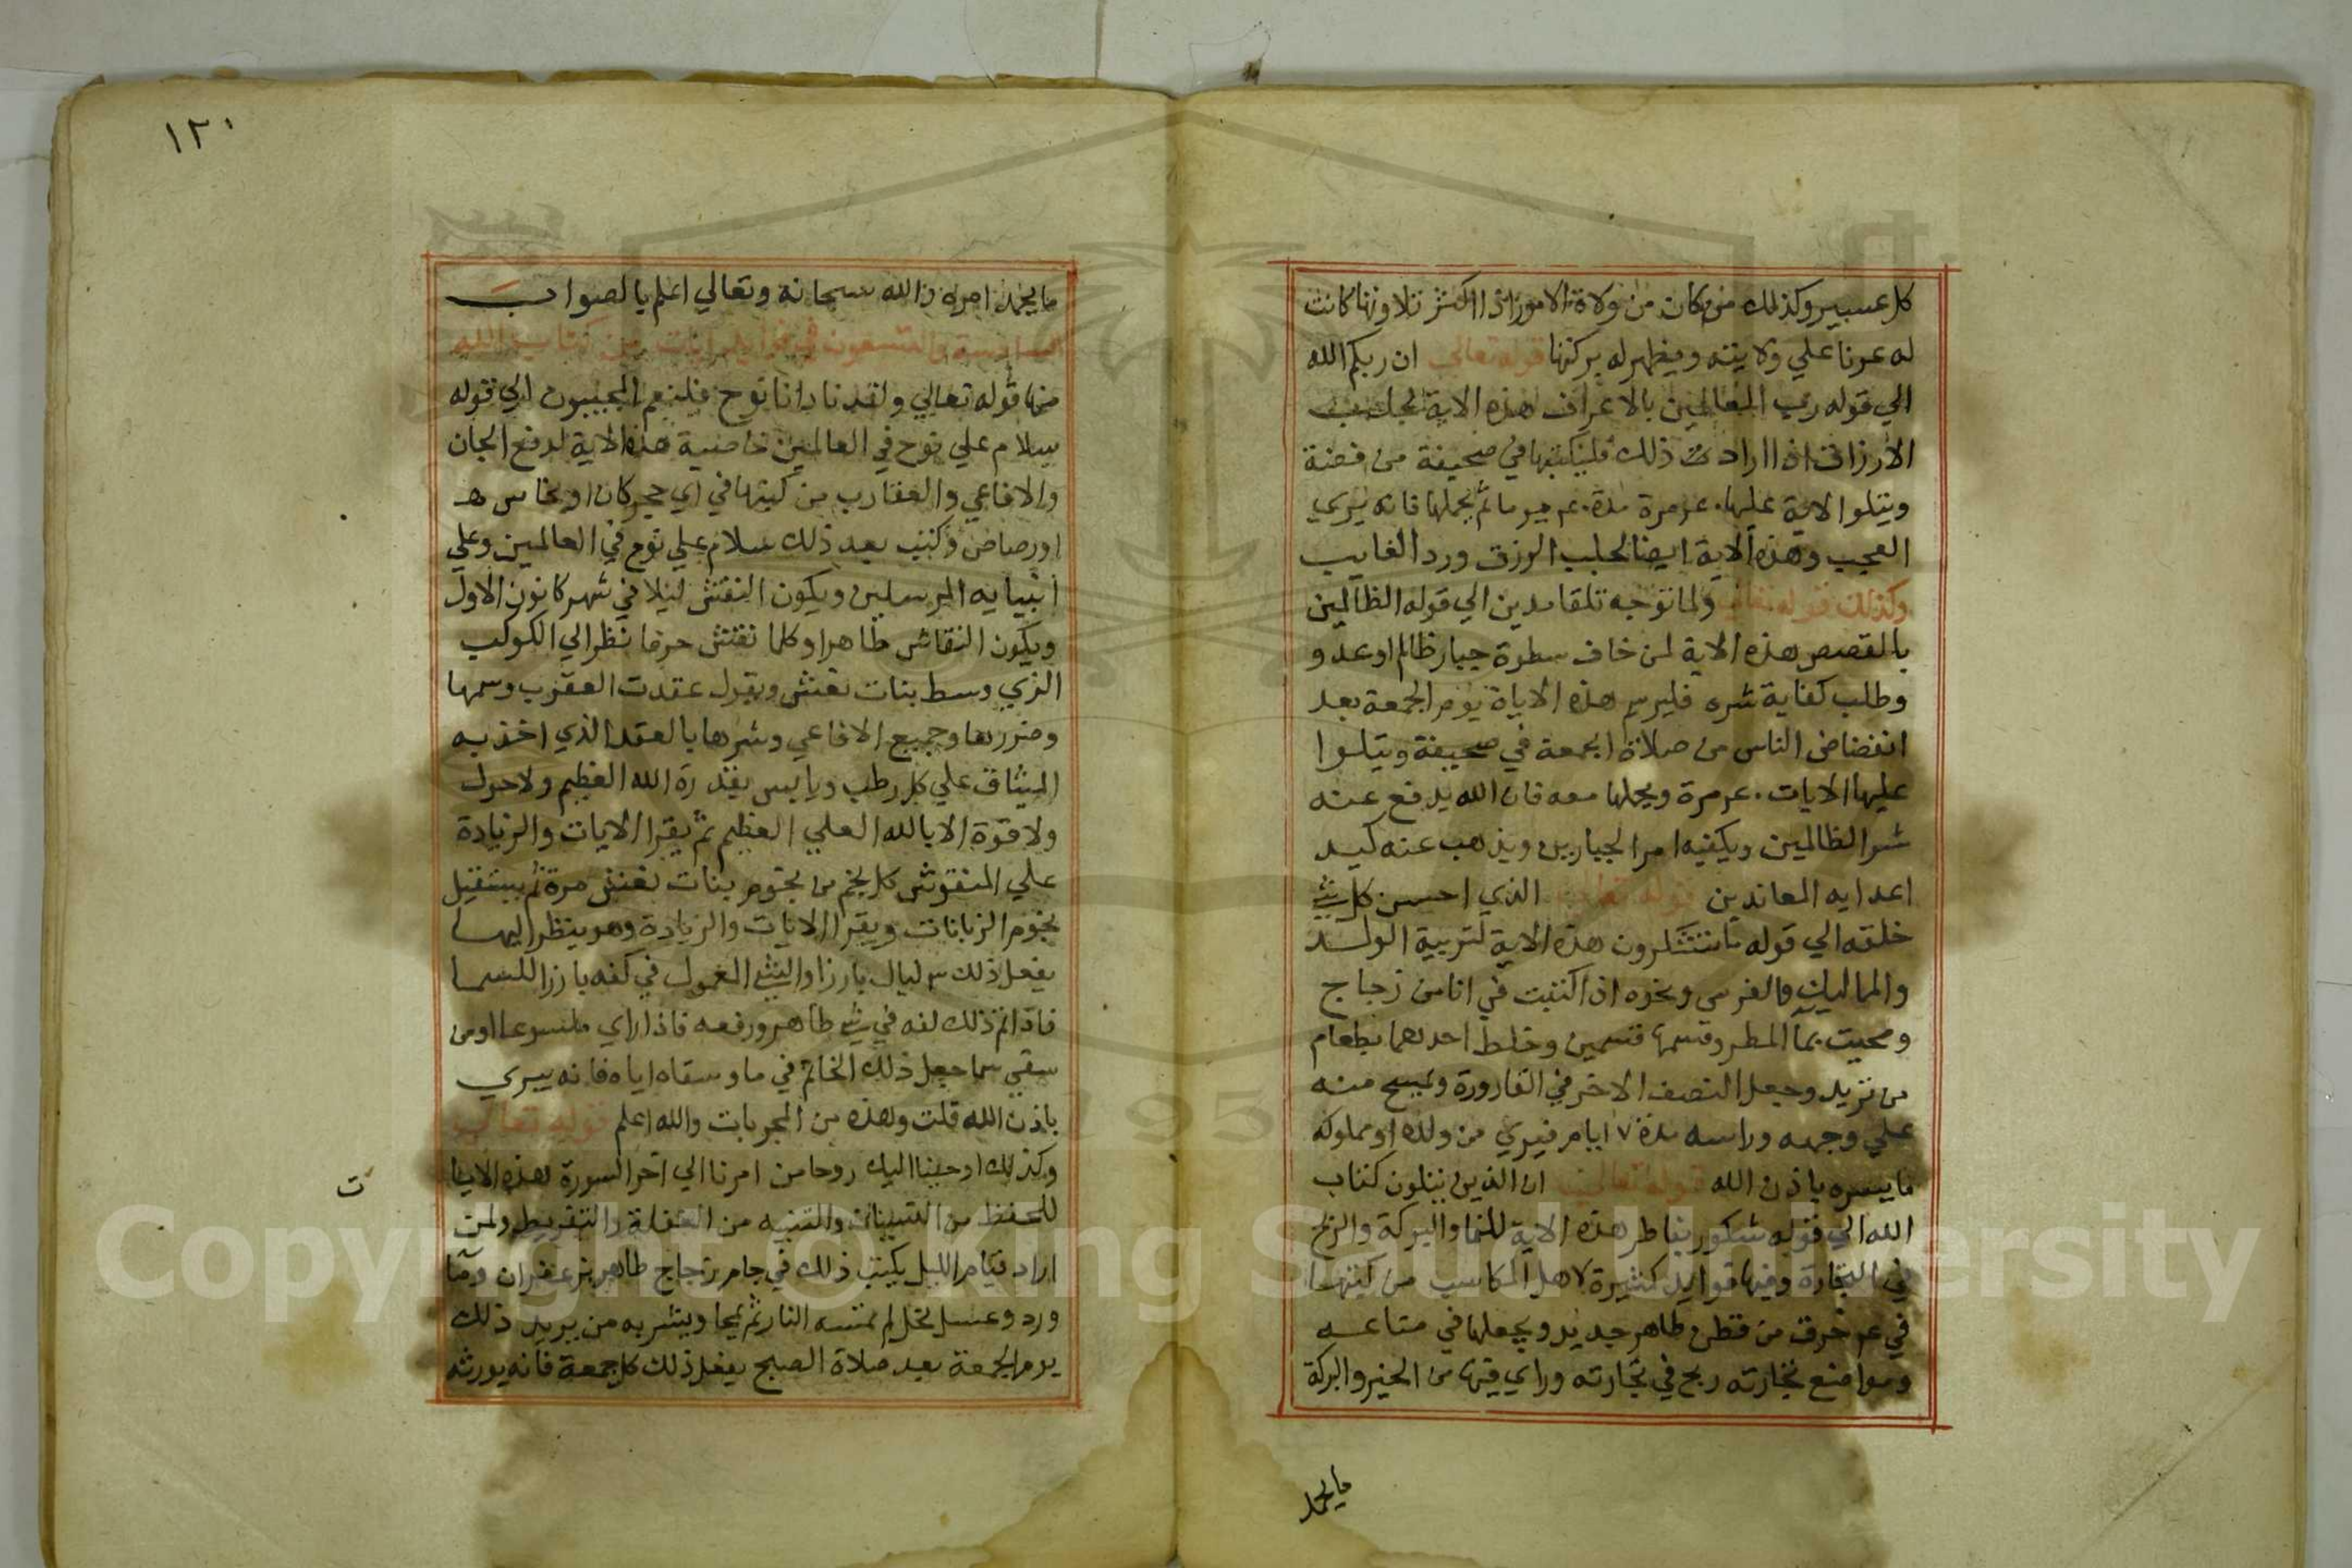 كل عسير وكذلك من كان من ولاة الامور اذا اكثر تلاوتها كانت
له عونا علي ولايته ويظهر له بركتها قوله تعالي ان ربكم الله
الي قوله رب العالمين بالاعراف هذه الاية لجلب
الارزاق اذا اردت ذلك فليكتبها في صحيفة من فضة
ويتلوا الاية عليها مرة مدة يوما ثم يحملها فانه يري
العجب وهذه الاية ايضا لجلب الرزق ورد الغايب
وكذلك قوله تعالي ولما توجه تلقا مدين الي قوله الظالمين
بالقصص هذه الاية لمن خاف سطوة جبار ظالم او عدو
وطلب كفاية شره فليرسم هذه الاياة يوم الجمعة بعد
انفضاض الناس من صلاة الجمعة في صحيفة ويتلوا
عليها الايات مرة ويحملها معه فان الله يدفع عنه
شر الظالمين ويكفيه امر الجبارين ويذهب عنه كيد
اعدايه المعاندين قوله تعالي الذي احسن كل شي
خلقه الي قوله ما تشكرون هذه الاية لتربية الولد
والمماليك والفرس ونحوه اذا كتبت في انا من زجاج
ومحيت بما المطر وقسمها قسمين وخلط احدهما بطعام
من تريد وجعل النصف الاخر في القارورة ويمسح منه
علي وجهه وراسه مدة ٧ ايام فيري من ولده او مملوكه
ما يسره باذن الله قوله تعالي ان الذين يتلون كتاب
الله الي قوله شكور بفاطر هذه الاية للنما والبركة والربح
في التجارة وفيها فوايد كثيرة لاهل المكاسب من كتبها
في خرق من قطن طاهر جديد ويجعلها في متاعه
ومواضع تجارته ربح في تجارته وراي فيها من الخير والبركة
ما يحمد
١٢٠
ما يحمد امره والله سبحانه وتعالي اعلم بالصواب
السادسة والتسعون في فوايد ايات من كتاب الله
منها قوله تعالي ولقد نادانا نوح فلنعم المجيبون الي قوله
سلام علي نوح في العالمين خاصية هذه الاية لدفع الجان
والافاعي والعقارب من كتبها في اي حجر كان او نحاس
او رصاص وكتب بعد ذلك سلام علي نوح في العالمين وعلي
انبيايه المرسلين ويكون النقش ليلا في شهر كانون الاول
ويكون النقاش طاهرا وكلما نقش حرفا نظر الي الكوكب
الذي وسط بنات نعش ويقول عقدت العقرب وسمها
وضررها وجميع الافاعي وشرها بالعقد الذي اخذ به
الميثاق علي كل رطب ويابس بقدرة الله العظيم ولا حول
ولا قوة الا بالله العلي العظيم ثم يقرا الايات والزيادة
علي المنقوش كل نجم من نجوم بنات نعش مرة ثم يستقبل
نجوم الزبانات ويقرا الايات والزيادة وهو ينظر اليها
يفعل ذلك ٣ ليال بارزا والشي المعمول في كفه بارزا للسما
فاذا تم ذلك لفه في شي طاهر ورفعه فاذا راي ملسوعا او من
سقي سما جعل ذلك الخاتم في ما وسقاه اياه فانه يبري
باذن الله قلت وهذه من المجربات والله اعلم قوله تعالي
وكذلك اوحينا اليك روحا من امرنا الي اخر السورة هذه الايا
ت
للحفظ من والتنبيه من الغفلة والتفريط ولمن
اراد قيام الليل يكتب ذلك في جام زجاج طاهر بزعفران وما
ورد وعسل نحل لم تمسه النار ثم يمحا ويشربه من يريد ذلك
يوم الجمعة بعد صلاة الصبح يفعل ذلك كل جمعة فانه يورثه
Copyright © King Saud University
195